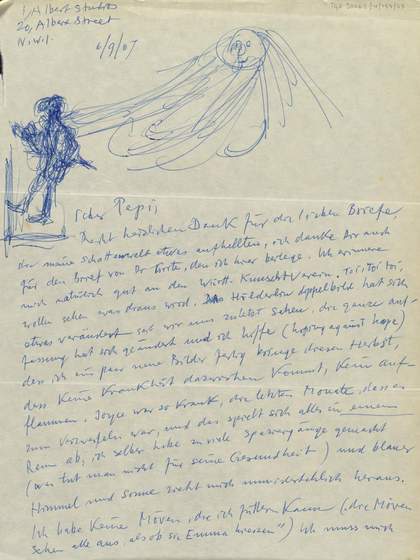 1, Albert Studios
20, Albert Street
N.W.1.
6/9/67
Lieber Pepi,
Recht herzlichen Dank für die lieben Briefe,
die meine Schattenwelt etwas aufhellten, ich danke Dir auch
für den Brief von Dr, den ich hier beilege. Ich erinnere
mich natürlich gut an den Württ. Kunstverein. Toi toi toi,
wollen sehen was draus wird. Hölderlin doppelbild hat sich
etwas verändert seit wir uns zuletzt sahen, die ganze auf-
fassung hat sich geändert und ich hoffe (hoping against hope)
dass ich ein paar neue Bilder fertig bringe diesen Herbst,
dass keine Krankheit dazwischen kommt, kein auf-
flammen. Joyce war so krank, die letzten Monate, dass es
zum verzweifeln war, und das spielt sich alles in einem
Raum ab, ich selber habe zu viele Spaziergänge gemacht
(was tut man nicht für seine Gesundheit) und blauer
Himmel und Sonne zieht mich unwiderstehlich heraus.
Ich habe keine Möven, die ich füttern kann (die Möven
sehen alle aus als ob sie Emma hiessen") Ich muss mich